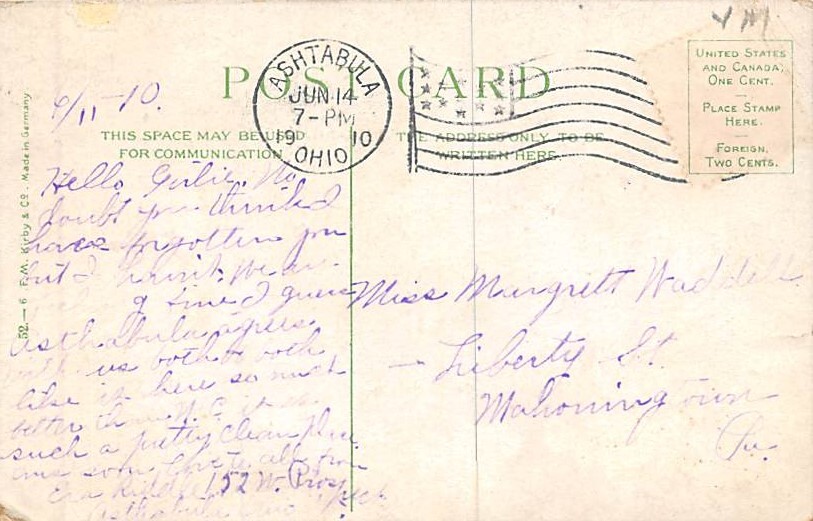 POST CARD
ASHTABULA
JUN 14
7-PM
19 10
OHIO
UNITED STATES
AND CANADA,
ONE CENT.
PLACE STAMP
HERE.
FOREIGN,
TWO CENTS.
THIS SPACE MAY BE USED
FOR COMMUNICATION.
THE ADDRESS ONLY TO BE
WRITTEN HERE.
52.—6 F.M. Kirby & Co. Made in Germany
6/11-10.
Hello Girlie. No
doubt you think I
have forgotten you
but I havnt. We are
of time I guess
Asthabula agrees
with us both & both
like it here so much
better than N.C. it is
such a pretty clean place
ans soon. Love to all from
Era Riddle 152 W. Prospect
Asthabula Ohio
Miss Margrett Waddell
Liberty St.
Mahoningtown
Pa.